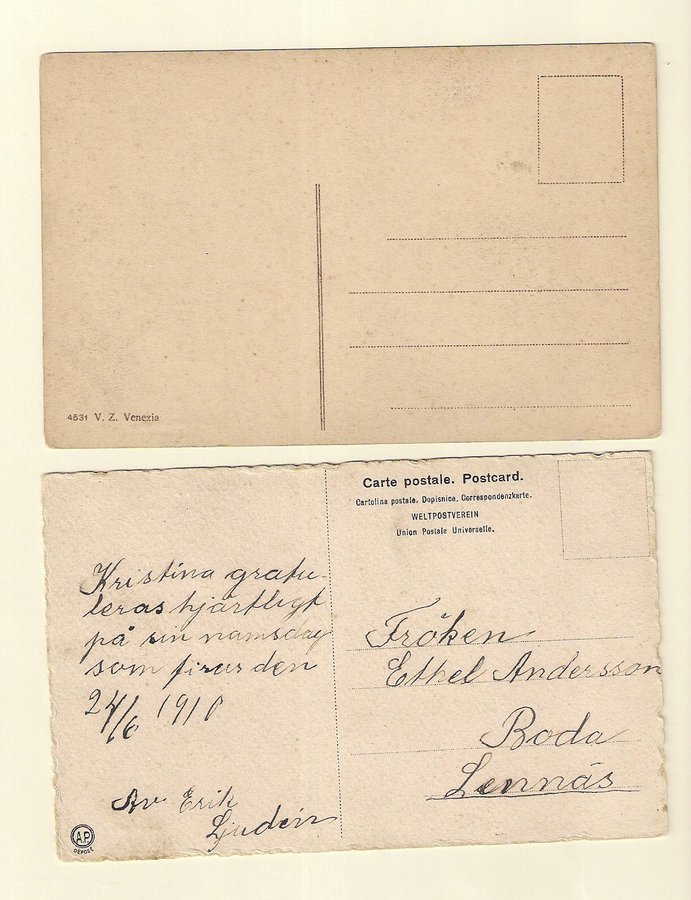 4531 V. Z. Venezia
Carte postale. Postcard.
Cartolina postale. Dopisnice. Correspondenzkarte.
WELTPOSTVEREIN
Union Postale Universelle.
Kristina gratu-
leras hjärtligt
på sin namsdag
som firas den
24/6 1910
Av Erik
Fröken
Ethel Andersson
Boda
Lennäs
A.P.
DÉPOSÉ